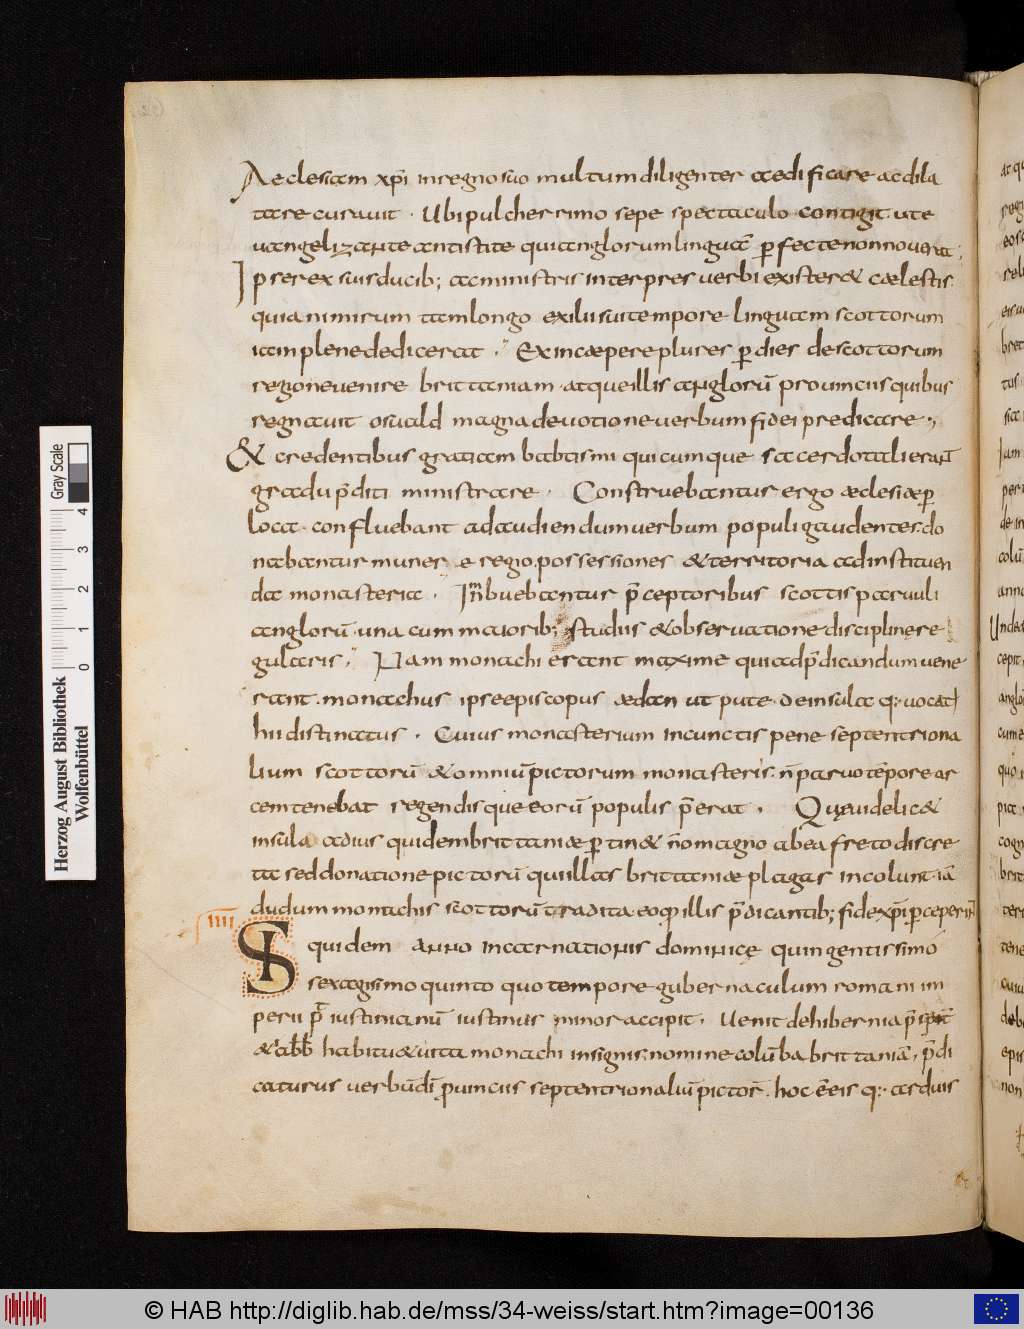 Aeclesiam xp̄i inregnosuo multumdiligenter aedificare acdila
tare curauit · Ubipulcherrimo sepe spectaculo contigit ute
uangelizante antistite quianglorumlinguā p̄fectenonnouerat;
Ipserex suisducib; acministris interpres uerbi existeret caelestis.
quianimirum tamlongo exiliisuitempore linguam scottorum
iamplenedidicerat · Exincaepereplures p̄dies descottorum
regioneuenire brittaniam · atqueillis anglorū prouinciisquibus
regnauit osuald magnadeuotioneuerbumfidei predicare ·,
& credentibus gratiam babtismi quicumque sacerdotalierant
gradup̄diti ministrare · Construebantur ergo aeclesiaep̄
loca · confluebant adaudiendumuerbum populigaudenter. do
nabantur muner e regio. possessiones &territoria adinstituen
da monasteria · Inbuebantur p̄ceptoribus scottis paruuli
anglorū · una cum maiorib; studiis &obseruatione disciplinere
gularis, Nam monachi erant maxime quiadp̄dicandumuene
rant · monachus ipseepiscopus aedan ut pute · deinsula q: uocat
hiidistinatus · Cuius monasterium incunctis pene septentriona
lium scottorū &omniūpictorum monasteris. n̄paruotēpore ar
cemtenebat regendisqueeorū populis p̄erat · Quaeuidelic&
insula adius quidembrittaniaep̄tin& n̄omagno abea fretodiscre
ta seddonationepictorū quiillas brittaniae plagas incolunt · iā
dudum monachis scottorū tradita eoq illis p̄dicantib; fidēxp̄ip̄ceperint
IIII
Siquidem anno incarnationis dominicę quingentissimo
sexagisimoquinto quotempore gubernaculum romani im
perii p̄ iustinianū iustinus minor accipit · Uenit dehibernia p̄sbt
&abb̄ habitu&uita monachi insignis. nomine colūba brittaniā · p̄di
caturus uerbūdī p̄uinciis septentrionaliūpictorū · hoc ē eis q: arduis
Herzog August Bibliothek
Wolfenbüttel
0 1 2 3 4
Gray Scale
© HAB http://diglib.hab.de/mss/34-weiss/start.htm?image=00136